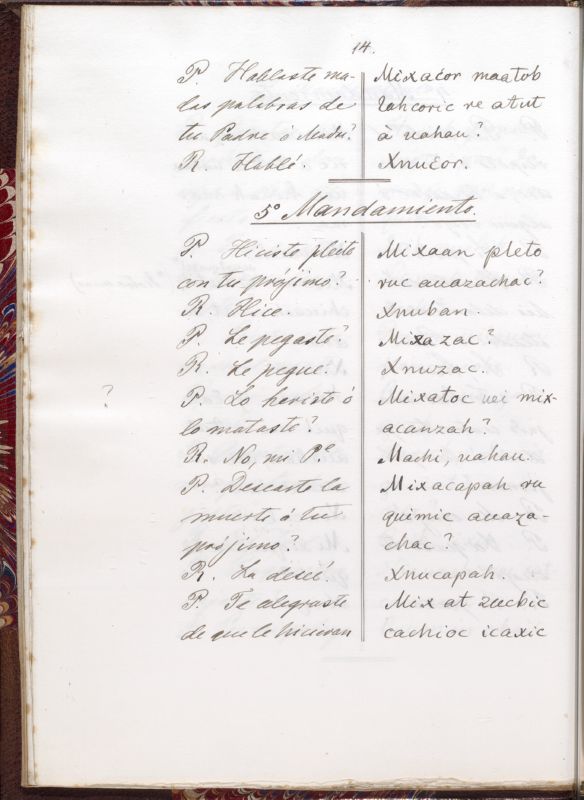 14.
P. Hablaste ma- Mixačor maatob
las palabras de tzahcoric re atut
tu Padre ó Madre? à vahau?
R. Hablé. Xnučor.
5º Mandamiento.
P. Hiciste pleito Mixaan pleto
con tu prójimo? ruc auazachac?
R. Hice. Xnuban.
P. Le pegaste? Mixazac?
R. Le pegué. Xnuzac.
? P. Lo heriste ó Mixatoc uei mix-
lo mataste? acanzah?
R. No, mi P.e Machi, vahau.
P. Deseaste la Mixacapah ru
muerte á tu quimic auaza-
prójimo? chac?
R. La deseé. Xnucapah.
P. Te alegraste Mix at zucbic
de que le hicieran cachioc icaxic